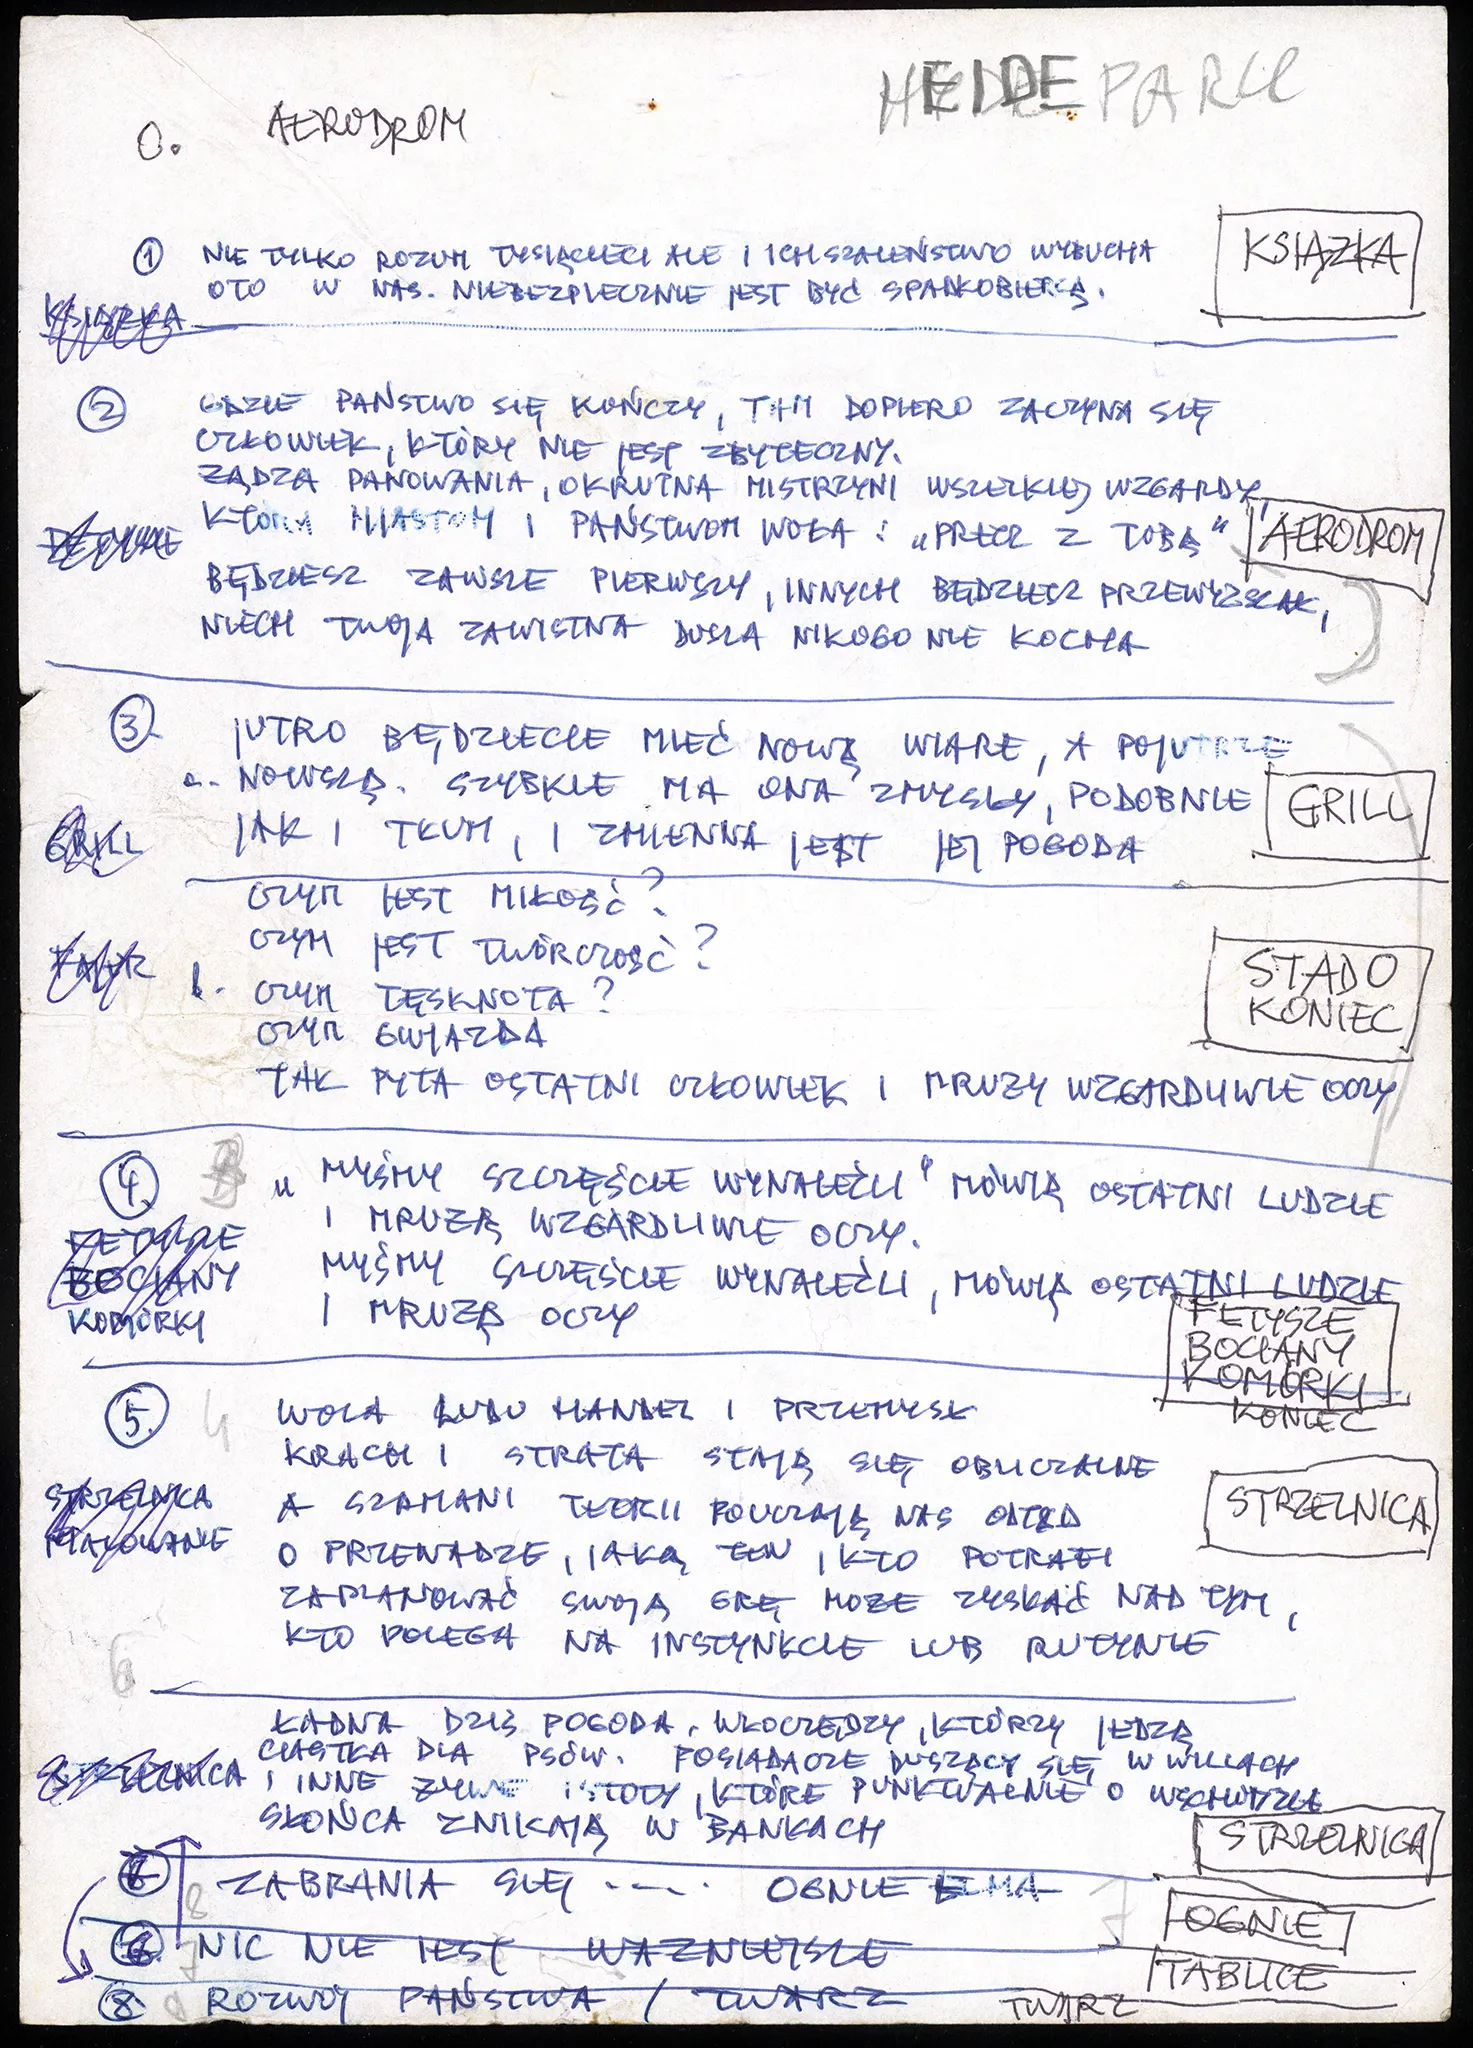 HEIDE PARK
0. AERODROM
KSIĄŻKA
① NIE TYLKO ROZUM TYSIĄCLECI ALE I ICH SZALEŃSTWO WYBUCHA
OTO W NAS. NIEBEZPIECZNIE JEST BYĆ SPADKOBIERCĄ.
KSIĄŻKA
② GDZIE PAŃSTWO SIĘ KOŃCZY, TAM DOPIERO ZACZYNA SIĘ
CZŁOWIEK, KTÓRY NIE JEST ZBYTECZNY.
ŻĄDZA PANOWANIA, OKRUTNA MISTRZYNI WSZELKIEJ WZGARDY,
KTÓRA MIASTOM I PAŃSTWOM WOŁA: „PRECZ Z TOBĄ"
AERODROM
BĘDZIESZ ZAWSZE PIERWSZY, INNYCH BĘDZIESZ PRZEWYŻSZAŁ,
NIECH TWOJA ZAWISTNA DUSZA NIKOGO NIE KOCHA
③ JUTRO BĘDZIECIE MIEĆ NOWĄ WIARE, A POJUTRZE
a. NOWSZĄ. SZYBKIE MA ONA ZMYSŁY, PODOBNIE
GRILL
GRILL JAK I TŁUM, I ZMIENNA JEST JEJ POGODA
CZYM JEST MIŁOŚĆ?
CZYM JEST TWÓRCZOŚĆ?
STADO
KONIEC
b. CZYM TĘSKNOTA?
CZYM GWIAZDA
TAK PYTA OSTATNI CZŁOWIEK I MRUŻY WZGARDLIWIE OCZY
④ „MYŚMY SZCZĘŚCIE WYNALEŹLI" MÓWIĄ OSTATNI LUDZIE
I MRUŻĄ WZGARDLIWIE OCZY.
FETYSZE
BOCIANY
KOMÓRKI
MYŚMY SZCZĘŚCIE WYNALEŹLI, MÓWIĄ OSTATNI LUDZIE
I MRUŻĄ OCZY
FETYSZE
BOCIANY
KOMÓRKI
KONIEC
⑤ 4 WOLA LUDU HANDEL I PRZEMYSŁ
KRACH I STRATA STAJĄ SIĘ OBLICZALNE
STRZELNICA
STRZELNICA A SZAMANI TEORII POUCZAJĄ NAS ODTĄD
O PRZEWADZE, JAKĄ TEN, KTO POTRAFI
ZAPLANOWAĆ SWOJĄ GRĘ MOŻE ZYSKAĆ NAD TYM,
KTO POLEGA NA INSTYNKCIE LUB RUTYNIE
6
ŁADNA DZIŚ POGODA. WŁÓCZĘDZY, KTÓRZY JEDZĄ
CIASTKA DLA PSÓW. POSIADACZE DUSZĄCY SIĘ W WILLACH
STRZELNICA I INNE ŻYWE ISTOTY, KTÓRE PUNKTUALNIE O WSCHODZIE
SŁOŃCA ZNIKAJĄ W BANKACH
STRZELNICA
8 ZABRANIA SIĘ ---- OGNIE 7
OGNIE
7 NIC NIE JEST WAŻNIEJSZE
TABLICE
⑧ ROZWÓJ PAŃSTWA / TWARZ
TWARZ